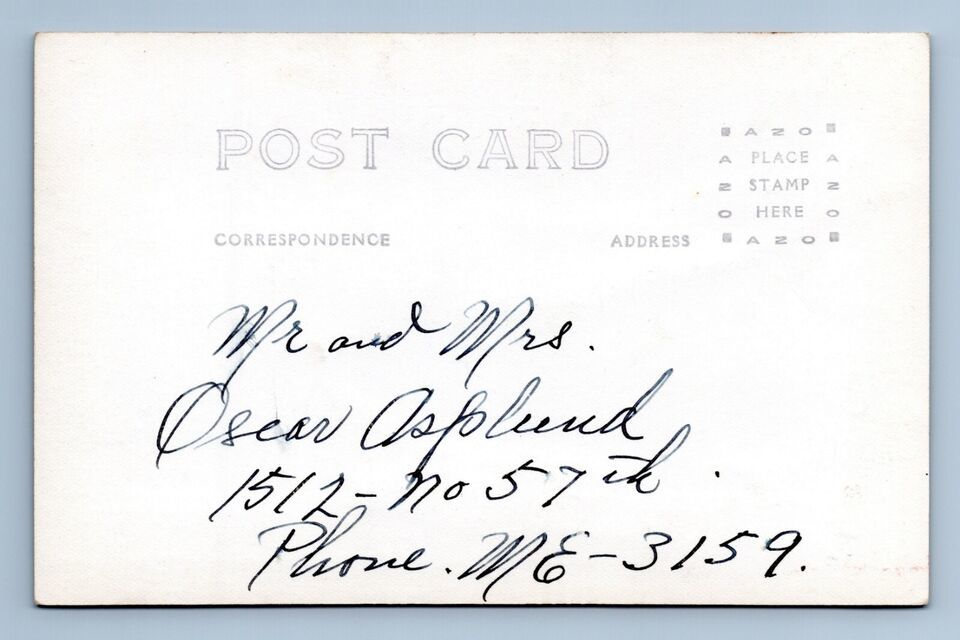 POST CARD
AZO
A PLACE A
Z STAMP Z
O HERE O
AZO
CORRESPONDENCE
ADDRESS
Mr and Mrs.
Oscar Asplund
1512-No 57th.
Phone. ME-3159.